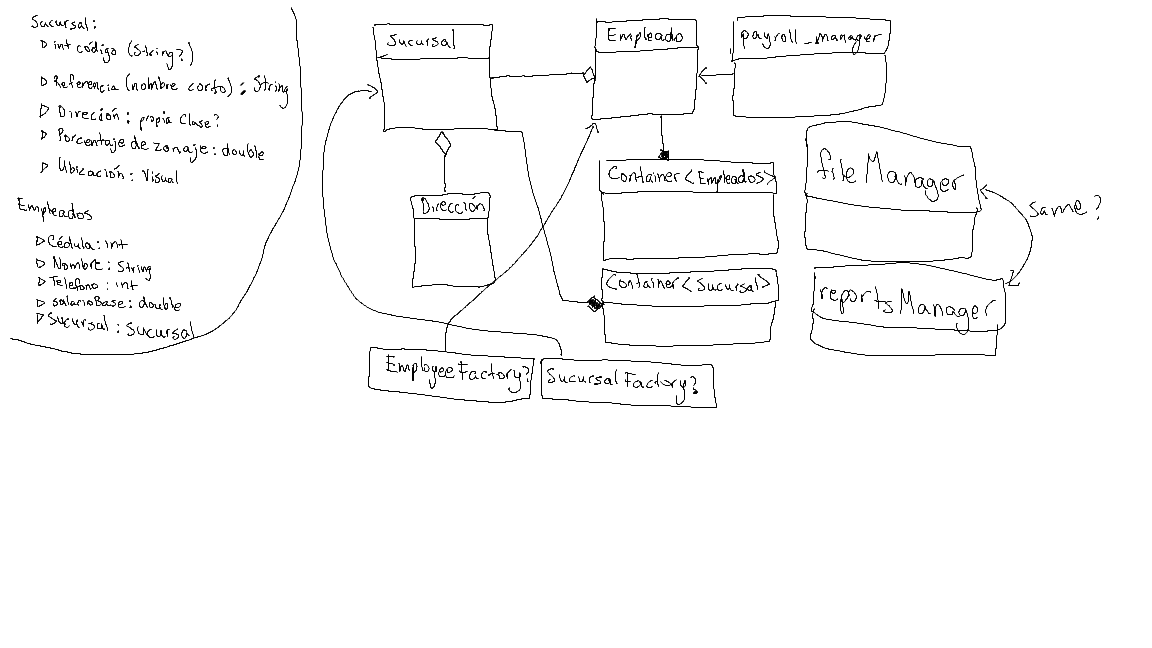 Sucursal:
int código (String?)
Referencia (nombre corto): String
Dirección: propia Clase?
Porcentaje de zonaje: double
Ubicación: Visual
Empleados
Cédula: int
Nombre: String
Telefono: int
salarioBase: double
Sucursal: Sucursal
Sucursal
Dirección
Empleado
payroll_manager
Container<Empleados>
Container<Sucursal>
fileManager
same?
reportsManager
EmployeeFactory?
SucursalFactory?